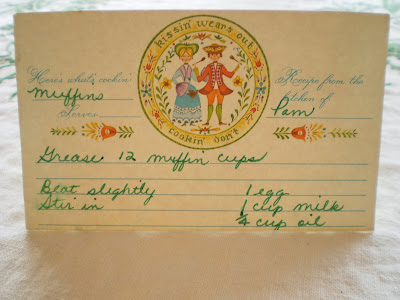 kissin' wears out
cookin' don't
Here's what's cookin'
Muffins
Serves
Recipe from the
kitchen of
Pam
Grease 12 muffin cups
Beat slightly 1 egg
Stir in 1 cup milk
1/4 cup oil